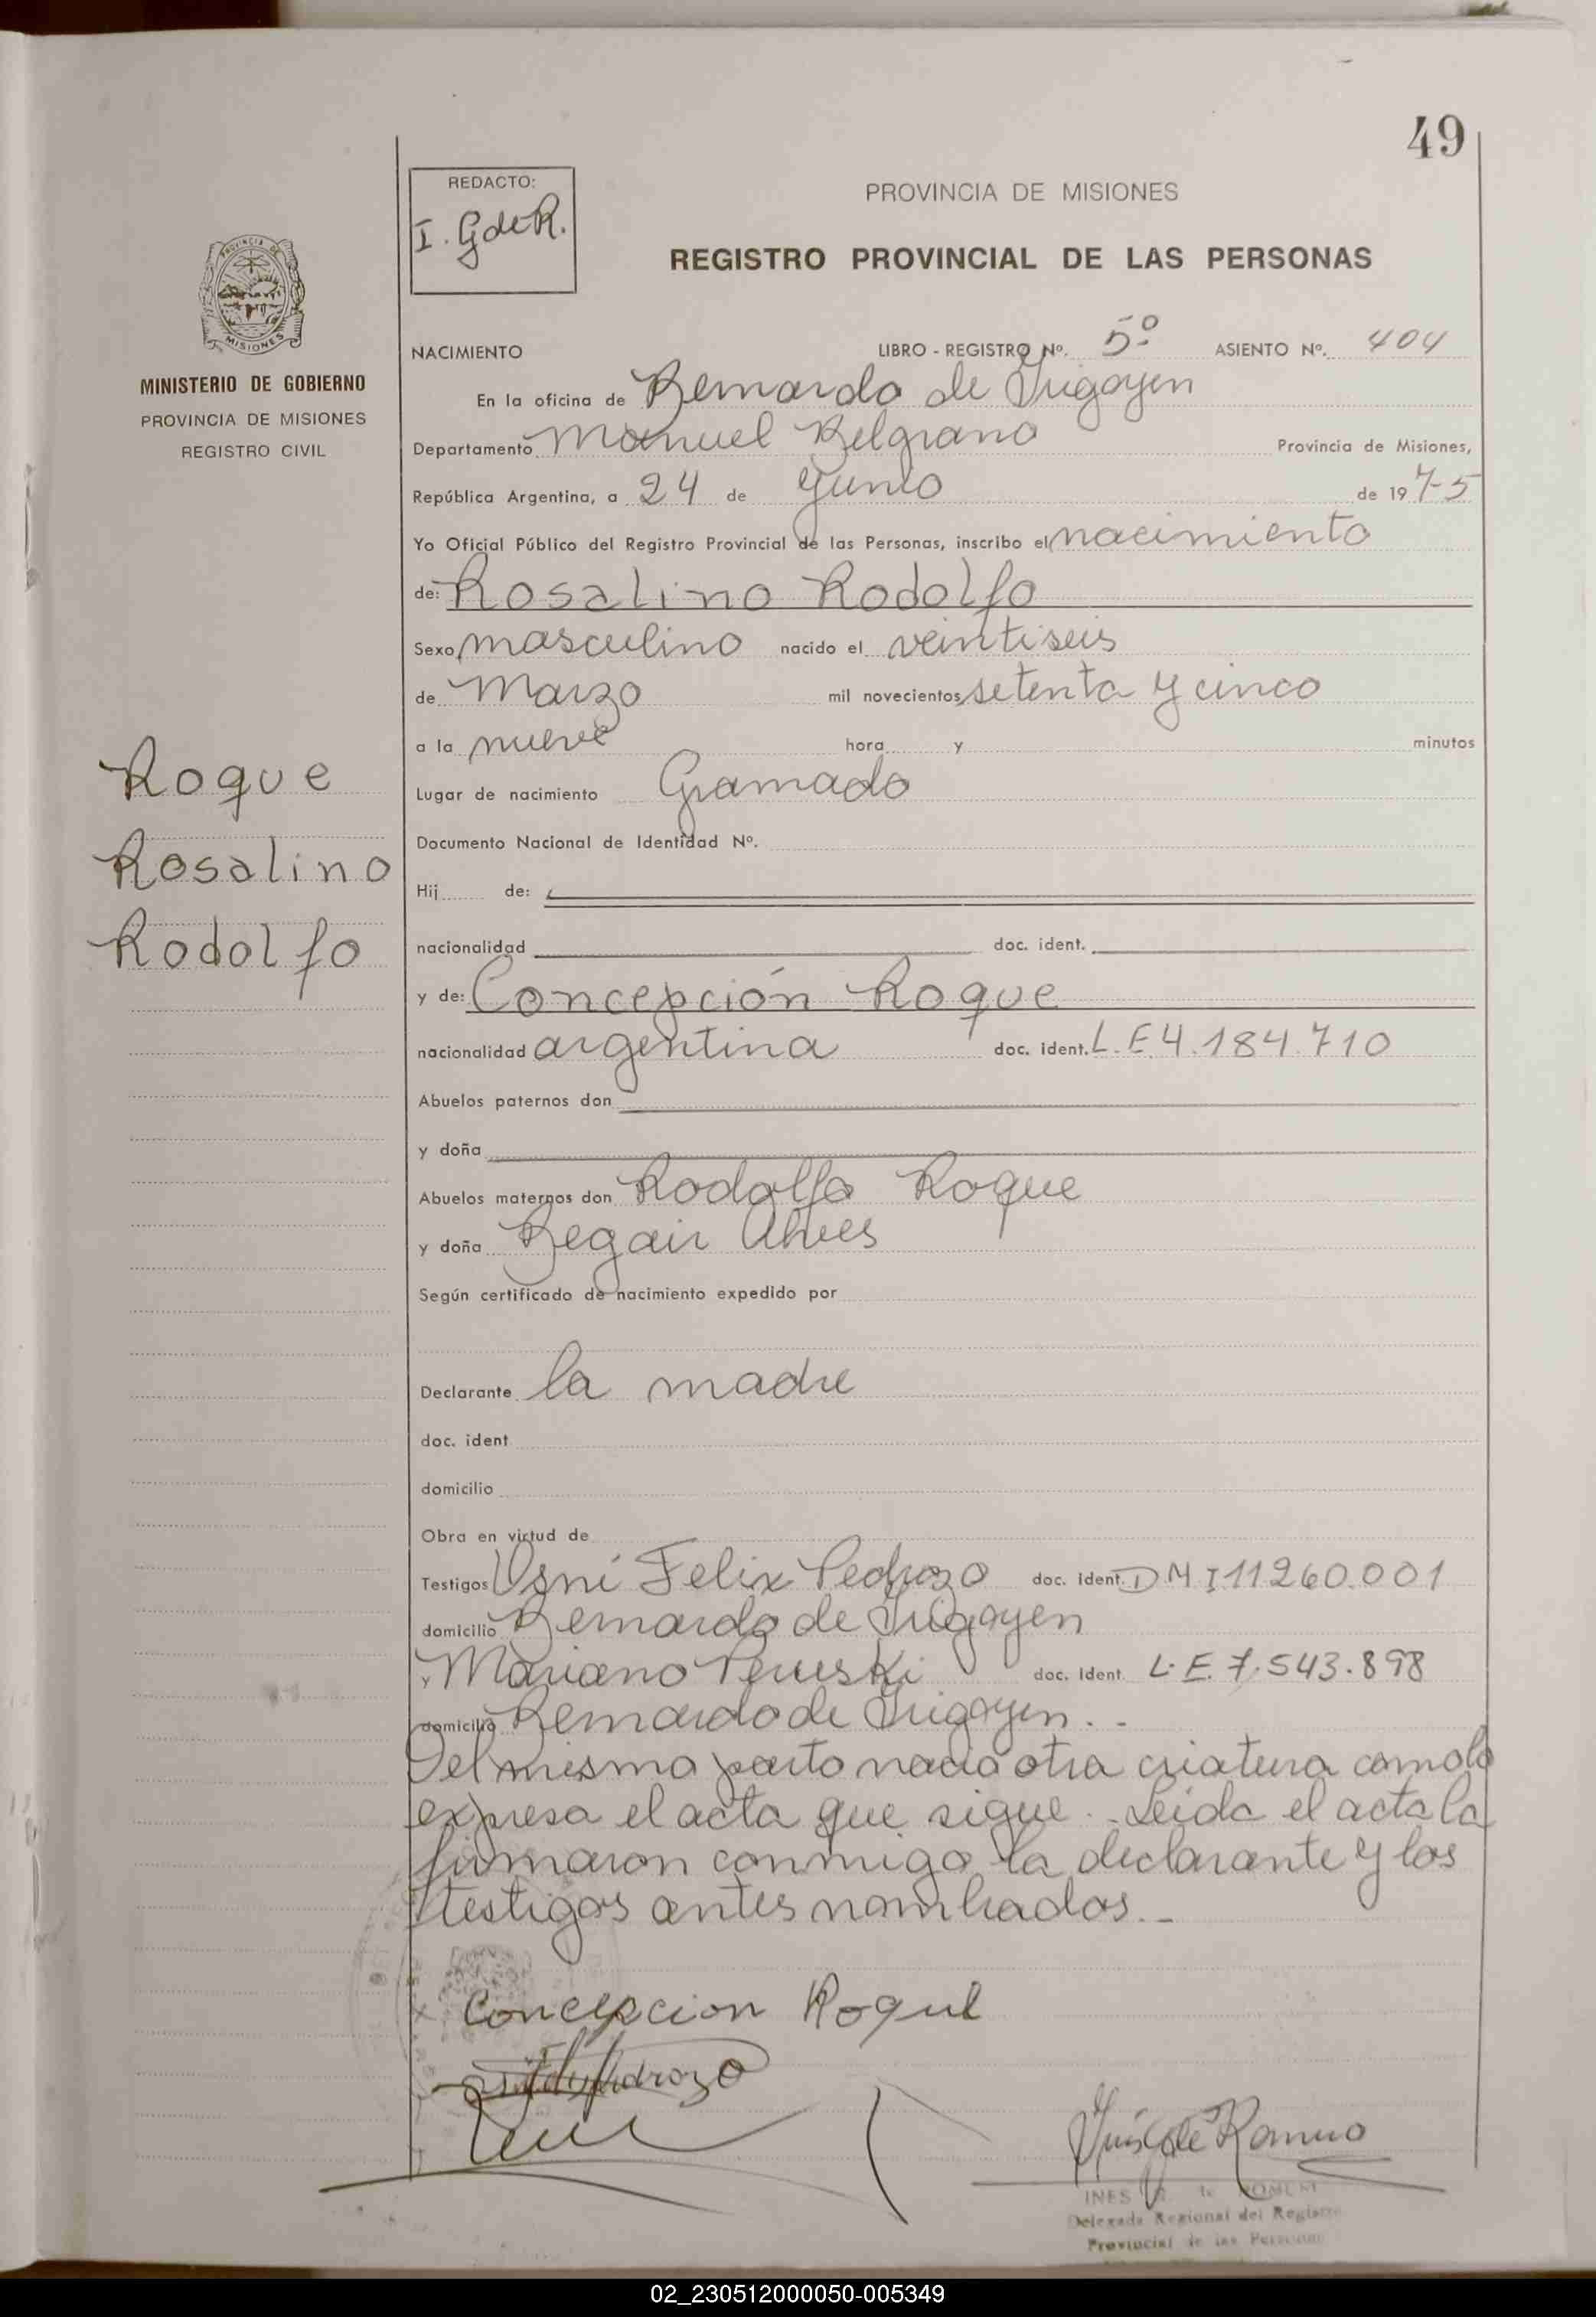 49
REDACTO:
I. G de R.
PROVINCIA DE MISIONES
REGISTRO PROVINCIAL DE LAS PERSONAS
MINISTERIO DE GOBIERNO
PROVINCIA DE MISIONES
REGISTRO CIVIL
NACIMIENTO LIBRO - REGISTRO Nº. 5º ASIENTO Nº. 404
En la oficina de Bernardo de Irigoyen
Departamento Manuel Belgrano Provincia de Misiones,
República Argentina, a 24 de Junio de 1975
Yo Oficial Público del Registro Provincial de las Personas, inscribo el nacimiento
de: Rosalino Rodolfo
Sexo masculino nacido el veintiseis
de Marzo mil novecientos setenta y cinco
a la nueve hora y minutos
Roque
Rosalino
Rodolfo
Lugar de nacimiento Gramado
Documento Nacional de Identidad Nº.
Hij de:
nacionalidad doc. ident.
y de: Concepción Roque
nacionalidad argentina doc. ident. L.E.4.184.710
Abuelos paternos don
y doña
Abuelos maternos don Rodolfo Roque
y doña Begair Alves
Según certificado de nacimiento expedido por
Declarante la madre
doc. ident
domicilio
Obra en virtud de
Testigos Osni Felix Pedrozo doc. ident. DNI 11260.001
domicilio Bernardo de Irigoyen
y Mariano doc. ident. L.E. 7.543.898
domicilio Bernardo de Irigoyen. -
Del mismo parto nacio otra criatura como lo
expresa el acta que sigue. - Leida el acta la
firmaron conmigo la declarante y los
testigos antes nombrados. -
Concepcion Roque
Pedrozo
INES
Delegada Regional del Registro
Provincial de las Personas
02_230512000050-005349